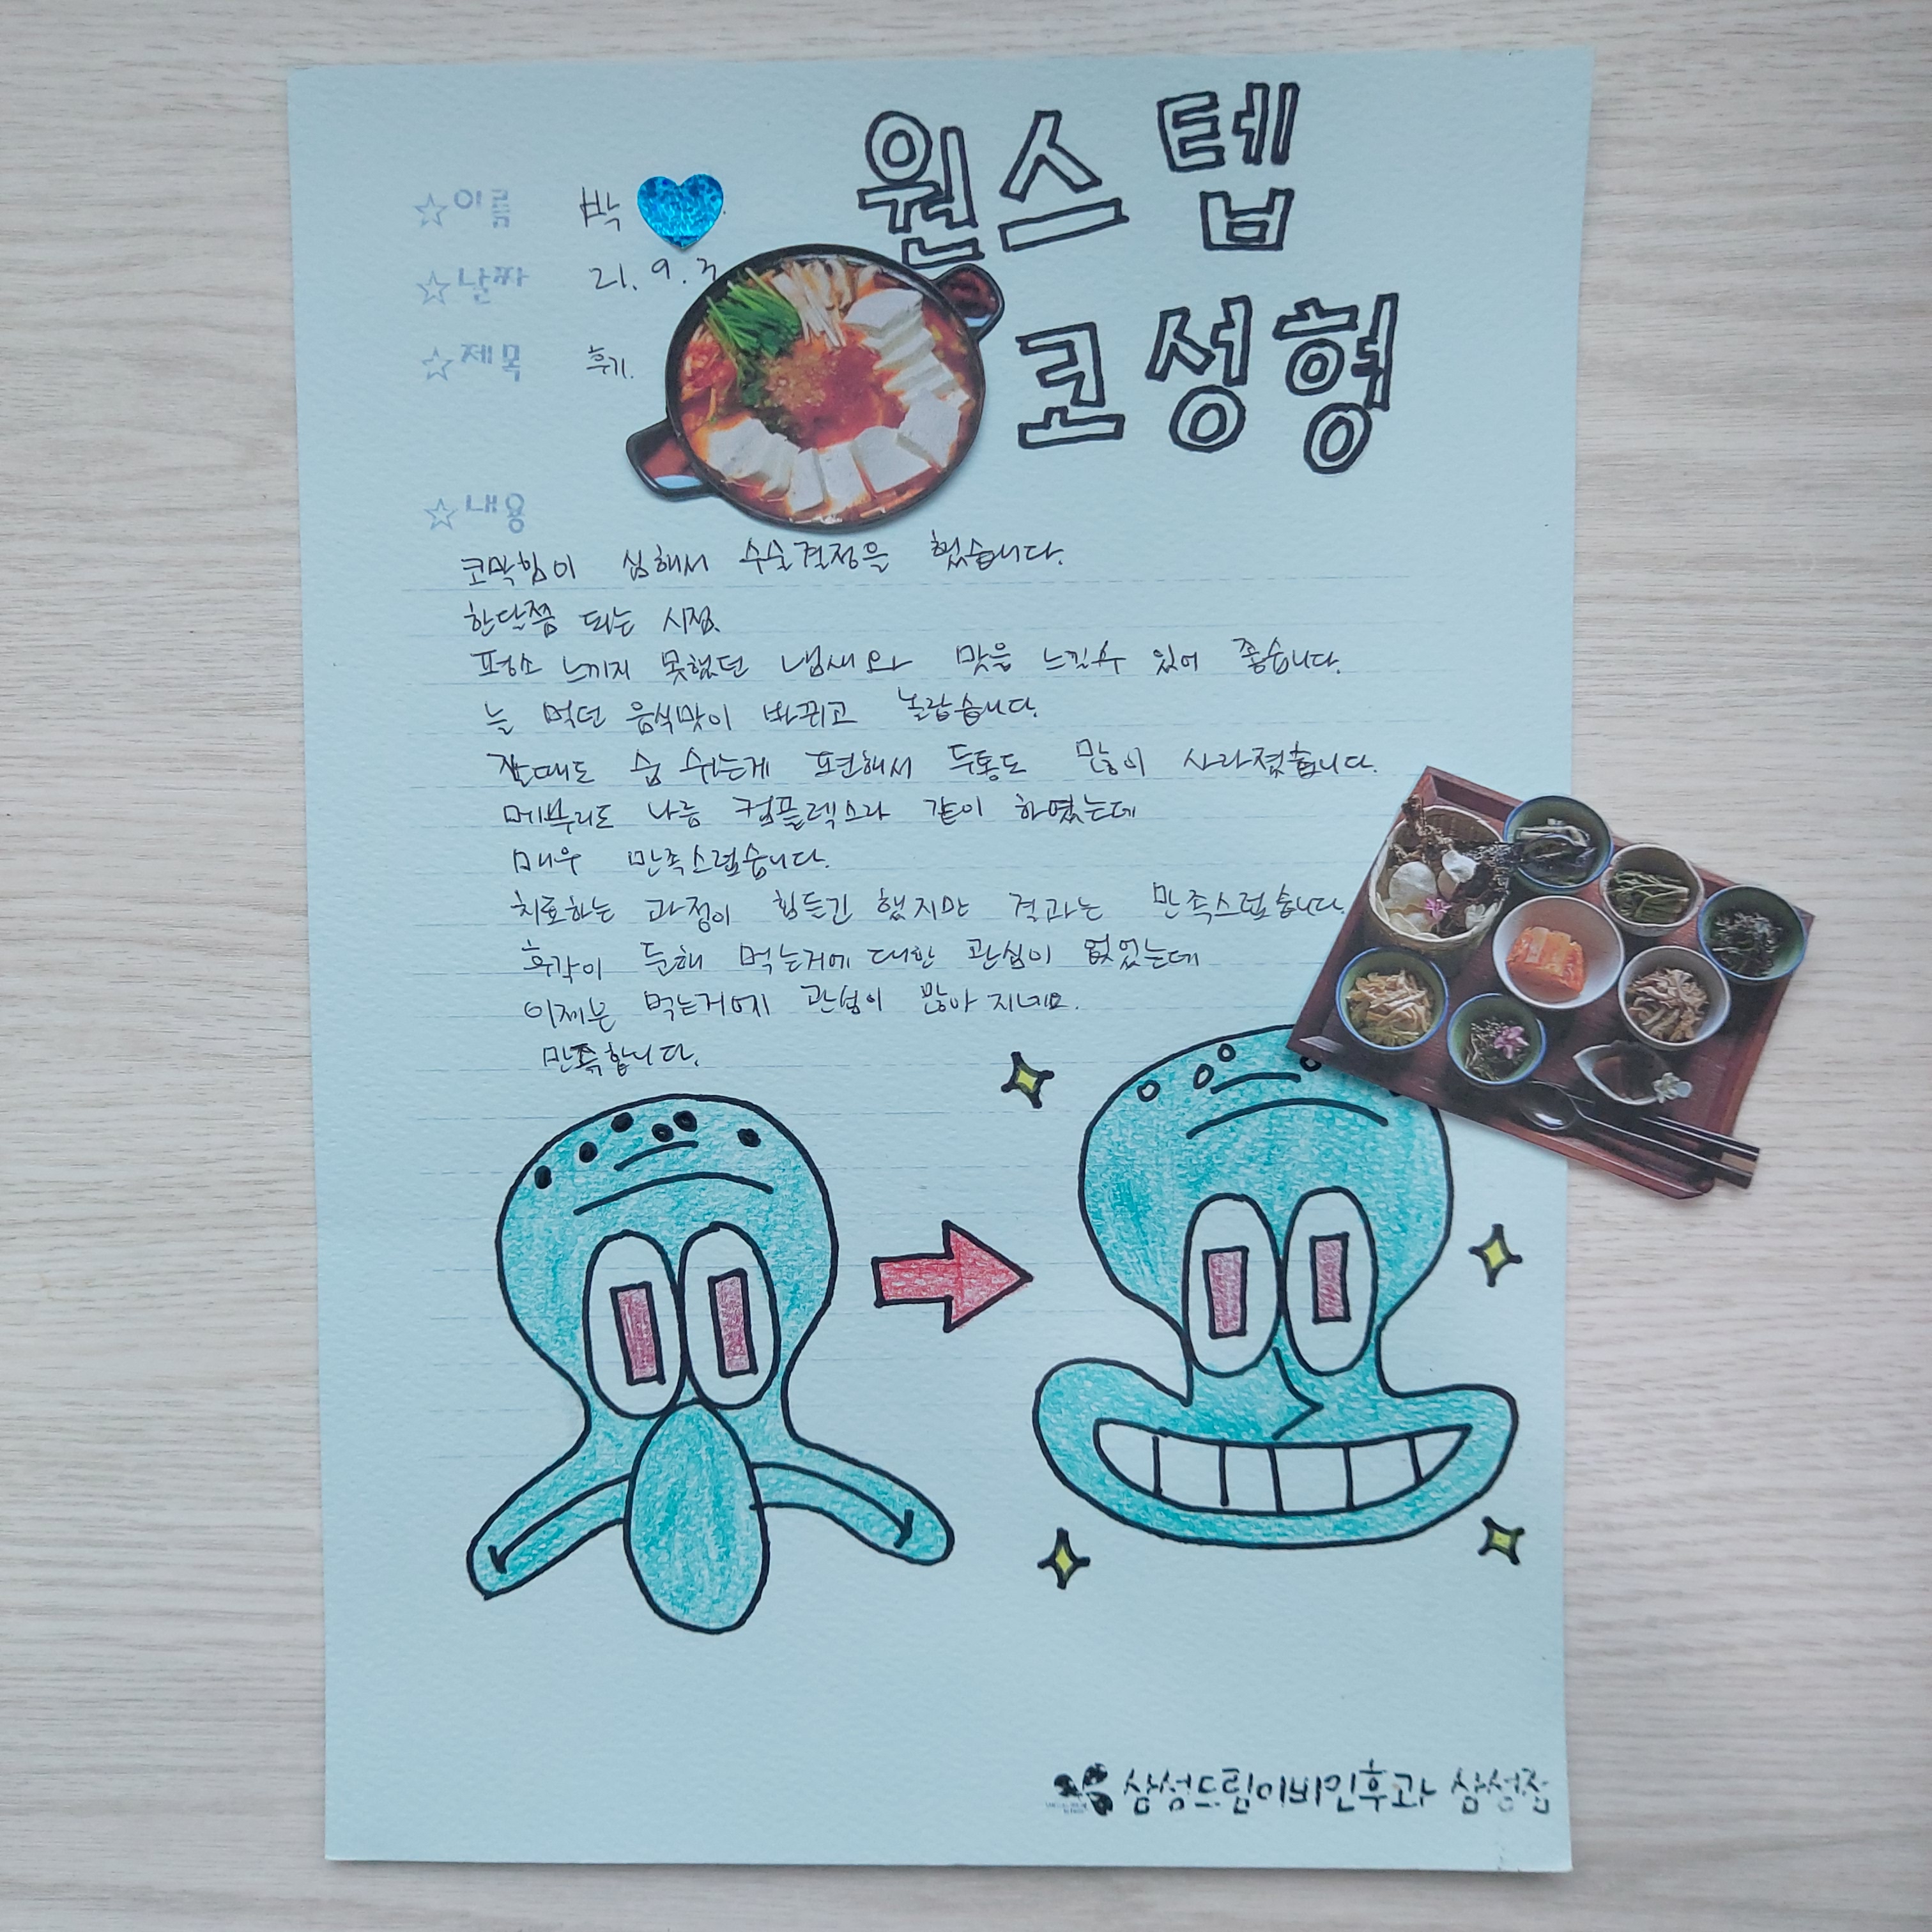 원스텝
코성형
☆이름 박
☆날짜 21. 9. 3
☆제목 후기.
☆내용
코막힘이 심해서 수술결정을 했습니다.
한달쯤 되는 시점.
평소 느끼지 못했던 냄새와 맛을 느낄수 있어 좋습니다.
늘 먹던 음식맛이 바뀌고 놀랍습니다.
잘때도 숨 쉬는게 편해서 두통도 많이 사라졌습니다.
메부리도 나름 컴플렉스라 같이 하였는데
매우 만족스럽습니다.
치료하는 과정이 힘들긴 했지만 결과는 만족스럽습니다.
후각이 둔해 먹는거에 대한 관심이 없었는데
이제는 먹는거에 관심이 많아 지네요.
만족합니다.
삼성드림이비인후과 삼성점